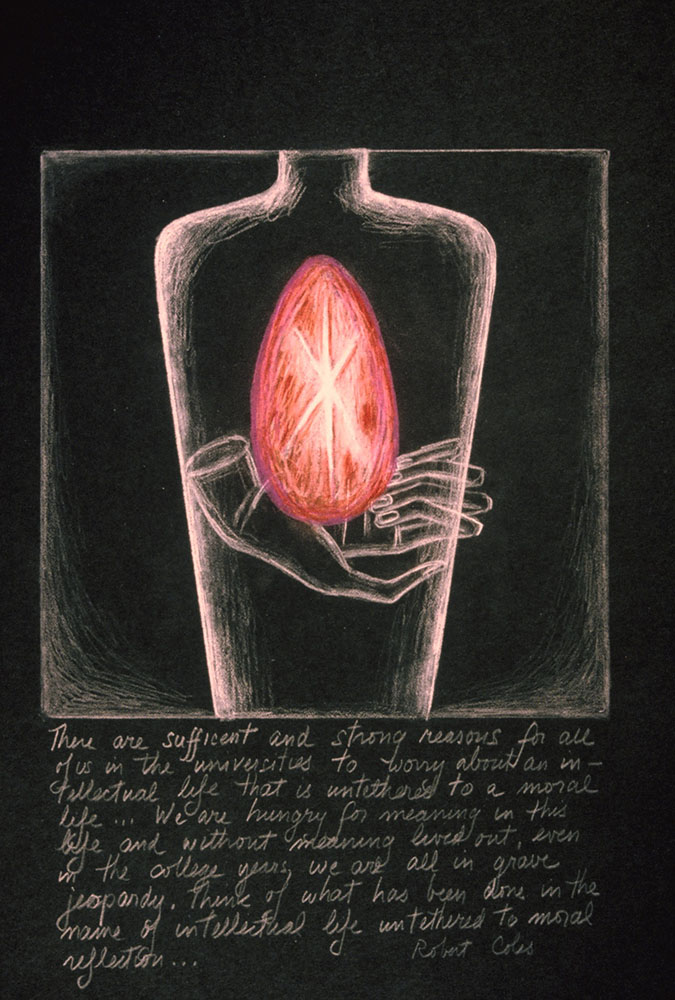 There are sufficent and strong reasons for all
of us in the universities to worry about an in-
tellectual life that is untethered to a moral
life ... We are hungry for meaning in this
life and without meaning lived out, even
in the college years, we are all in grave
jeopardy. Think of what has been done in the
name of intellectual life untethered to moral
reflection...
Robert Coles